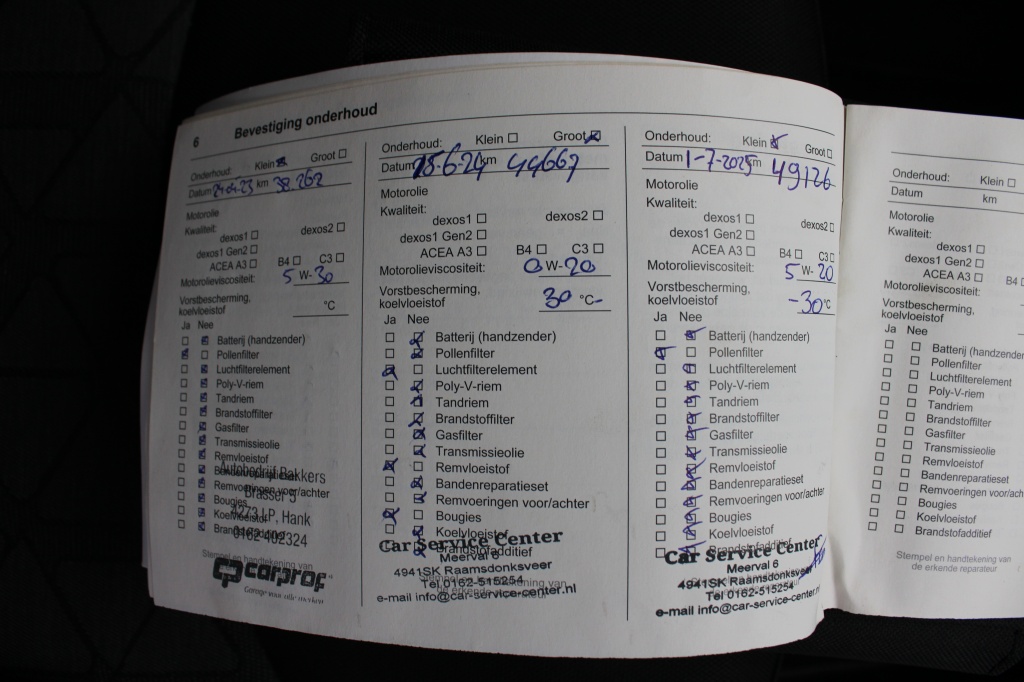 6 Bevestiging onderhoud
Onderhoud: Klein Groot
Datum km 38.262
Motorolie
Kwaliteit:
dexos1 dexos2
dexos1 Gen2
ACEA A3 B4 C3
Motorolieviscositeit: 5 W-30
Vorstbescherming,
koelvloeistof °C
Ja Nee
Batterij (handzender)
Pollenfilter
Luchtfilterelement
Poly-V-riem
Tandriem
Brandstoffilter
Gasfilter
Transmissieolie
Remvloeistof
Bandenreparatieset
Remvoeringen voor/achter
Bougies
Koelvloeistof
Brandstofadditief
Autobedrijf Bakkers
Brasser 5
4273 LP, Hank
0162-402324
Stempel en handtekening van
carprof
Garage voor alle merken
Onderhoud: Klein Groot
Datum 18-6-24 km 44667
Motorolie
Kwaliteit:
dexos1 dexos2
dexos1 Gen2
ACEA A3 B4 C3
Motorolieviscositeit: 0 W-20
Vorstbescherming,
koelvloeistof 30 °C-
Ja Nee
Batterij (handzender)
Pollenfilter
Luchtfilterelement
Poly-V-riem
Tandriem
Brandstoffilter
Gasfilter
Transmissieolie
Remvloeistof
Bandenreparatieset
Remvoeringen voor/achter
Bougies
Koelvloeistof
Brandstofadditief
Car Service Center
Meerval 6
4941SK Raamsdonksveer
Tel.0162-515254
e-mail info@car-service-center.nl
Onderhoud: Klein Groot
Datum 1-7-2025 km 49126
Motorolie
Kwaliteit:
dexos1 dexos2
dexos1 Gen2
ACEA A3 B4 C3
Motorolieviscositeit: 5 W-20
Vorstbescherming,
koelvloeistof -30 °C
Ja Nee
Batterij (handzender)
Pollenfilter
Luchtfilterelement
Poly-V-riem
Tandriem
Brandstoffilter
Gasfilter
Transmissieolie
Remvloeistof
Bandenreparatieset
Remvoeringen voor/achter
Bougies
Koelvloeistof
Brandstofadditief
Car Service Center
Meerval 6
4941SK Raamsdonksveer
Tel 0162-515254
e-mail info@car-service-center.nl
Onderhoud: Klein
Datum km
Motorolie
Kwaliteit:
dexos1
dexos1 Gen2
ACEA A3 B4
Motorolieviscositeit:
Vorstbescherming,
koelvloeistof
Ja Nee
Batterij (handzender
Pollenfilter
Luchtfilterelement
Poly-V-riem
Tandriem
Brandstoffilter
Gasfilter
Transmissieolie
Remvloeistof
Bandenreparatieset
Remvoeringen voor/achter
Bougies
Koelvloeistof
Brandstofadditief
Stempel en handtekening van
de erkende reparateur